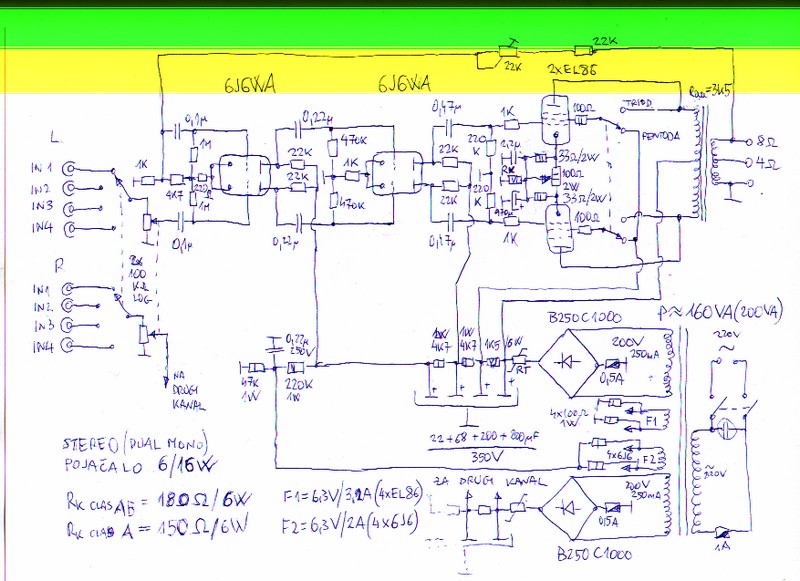 22K
22K
2xEL86
6J6WA
6J6WA
Raa=3K5
0,1µ
0,22µ
0,47µ
1K
100Ω
TRIOD
PENTODA
L
IN 1
IN2
IN3
IN4
1K
4K7
1M
220Ω
1M
22K
22K
470K
1K
470K
22K
22K
220
K
220
K
2,2µ
RK
33Ω/2W
100Ω
2W
33Ω/2W
8Ω
4Ω
0,1µ
0,22µ
0,47µ
470µ
1K
100Ω
R
IN1
IN2
IN3
IN4
2x
100
KΩ
LOG
NA
DRUGI
KANAL
0,22µ
250V
47K
1W
220K
1W
1W
4K7
1W
4K7
1K5/6W
RT
B250C1000
P≈160VA(200VA)
200V
250mA
0,5A
220V
~
22+68+200+800µF
350V
4x100Ω
1W
F1
4x6J6
F2
~
220V
STEREO (DUAL MONO)
POJAČALO 6/16W
RK CLAS AB = 180Ω/6W
RK CLAS A = 150Ω/6W
F1=6,3V/3,2A(4xEL86)
F2=6,3V/2A(4x6J6)
ZA DRUGI KANAL
200V
250mA
0,5A
B250C1000
1A